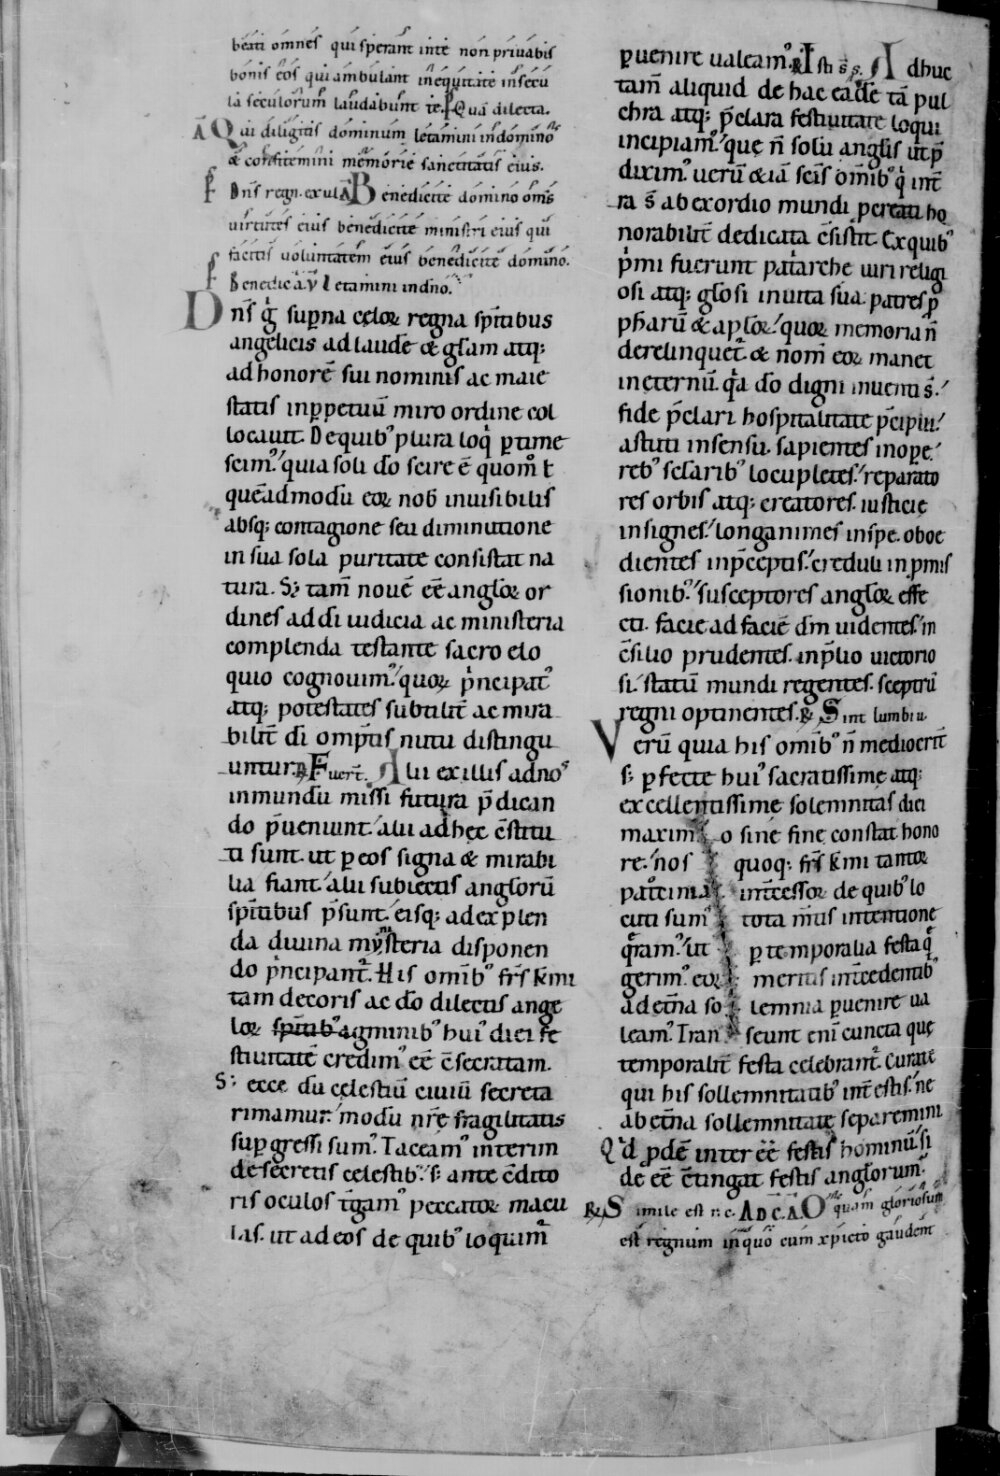 beati omnes qui sperant in te non privabis
bonis eos qui ambulant in equitate in secu
la seculorum laudabunt te. Ps Quā dilecta.
Ā Qui diligitis dominum letamini in domino
& confitemini memorie sanctitatis eius.
Ps Dn̄s regn. exul. Ā Benedicite domino om̄s
uirtutes eius benedicite ministri eius qui
facitis uoluntatem eius benedicite domino.
Ps Benedic ā. V̄ Letamini in dn̄o.
Dn̄s q̇ sup̄na celoꝝ regna sp̄itibus
angelicis ad laudē & gl̄am atq;
ad honorē sui nominis ac maie
statis in ꝑpetuū miro ordine col
locauit. De quibꝰ plura loq̇ ꝑtime
scimꝰ. quia soli dō scire ē quom̊ ł
quēadmodū eoꝝ nob̄ inuisibilis
absq; contagione seu diminutione
in sua sola puritate consistat na
tura. S; tam̄ nouē eē angl̄oꝝ or
dines ad dī iudicia ac ministeria
complenda testante sacro elo
quio cognouimꝰ. quoꝝ p̍ncipatꝰ
atq; potestates subtilit̄ ac mira
bilit̄ dī omp̄tis nutu distingu
untur. ℟ Fuer̄t. Alii ex illis ad nos
in mundū missi futura p̄dican
do p̄ueniunt. alii ad hęc c̄stitu
ti sunt. ut ꝑ eos signa & mirabi
lia fiant. alii subiectis angl̄orū
sp̄itibus p̄sunt. eisq; ad explen
da diuina mysteria disponen
do p̍ncipant᷑. His omībꝰ fr̄s k̄mi
tam decoris ac dō dilectis ange
loꝝ sp̄itibꝰ agminibꝰ huiꝰ diei fe
stiuitatē credimꝰ eē c̄secratam.
S; ecce dū celestiū ciuiū secreta
rimamur. modū nr̄ę fragilitatis
suꝑgressi sumꝰ. Taceamꝰ interim
de secretis celestibꝰ. s; ante c̄dito
ris oculos t̄gamꝰ peccatoꝝ macu
las. ut ad eos de quibꝰ loquim᷑
ꝑuenire ualeamꝰ. ℟ Isti s̄ s̄. Adhuc
tam̄ aliquid de hac eadē tā pul
chra atq; p̄clara festiuitate loqui
incipiamꝰ. quę n̄ solū anglis ut p̄
diximꝰ. uerū & iā sc̄is om̄ibꝰ q̍ int̄
ra s̄ ab exordio mundi ꝑcreati ho
norabilit̄ dedicata c̄sistit. Ex quibꝰ
p̍mi fuerunt pat̍arche uiri religi
osi atq; gl̄osi in uita sua. patres ꝓ
pharū & apl̄oꝝ. quoꝝ memoria n̄
derelinquet᷑. & nom̄ eoꝝ manet
in eternū. q̍a dō digni inuenti s̄.
fide p̄clari hospitalitate p̄cipui.
astuti in sensu. sapientes in oꝑe.
rebꝰ scsaribꝰ locupletes. reparato
res orbis atq; creatores. iusticię
insignes. longanimes in spe. oboe
dientes in p̄ceptis. creduli in ꝓmis
sionibꝰ. susceptores angl̄oꝝ effe
cti. facie ad faciē dm̄ uidentes. in
c̄silio prudentes. in p̄lio uictorio
si. statū mundi regentes. sceptrū
regni optinentes. ℟ Sint lumbi u.
Verū quia his om̄ibꝰ n̄ mediocrit̄
s; ꝑfecte huiꝰ sacratissimę atq;
excellentissimę solemnitas diei
maximo sine fine constat hono
re. nos quoq; fr̄s k̄mi tantoꝝ
pat̊cinia int̄cessoꝝ de quibꝰ lo
cuti sumꝰ tota m̄tis intentione
q̄ramꝰ. ut ꝑ temporalia festa q̄
gerimꝰ. eoꝝ meritis int̄cedentibꝰ
ad et̄na solemnia ꝑuenire ua
leamꝰ. Transeunt eni cuncta quę
temporalit̄ festa celebrant᷑. Curate
qui his sollemnitatibꝰ int̄estis. ne
ab et̄na sollemnitate separemini
Qͥd ꝓdē inter eē̄ festis hominū. si
de eē c̄tingat festis anglorum.
℟ Simile est r. c. AD C. Ā O quam gloriosum
est regnum in quo cum xpicto gaudent